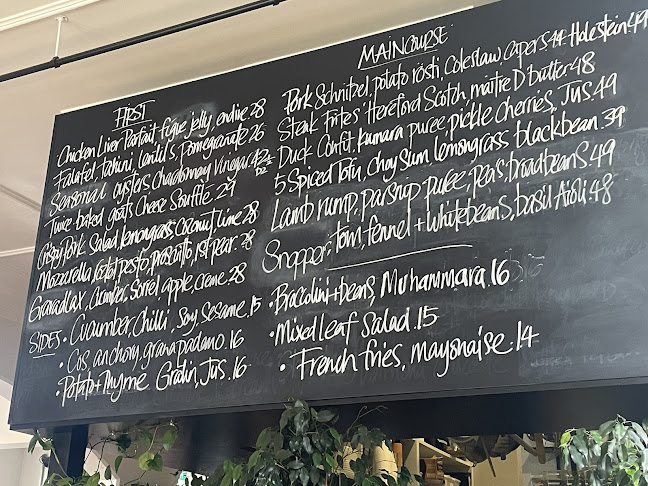 FIRST
Chicken Liver Parfait figue jelly, endive 28
Falafel, tahini lentils, pomegranate 26
Seasonal oysters Chardonnay Vinegar 42 1/2 DZ
Twice baked goats Cheese Souffle 29
Crispy Pork Salad lemongrass Coconut, lime 28
Mozzarella, pesto, proscuitto, rst pear 28
Gravadlax, Cucumber, Sorrel, apple, creme 28
SIDES • Cucumber Chilli, Soy Sesame 15
• Cos, anchovy, grana padano 16
• Potato + thyme Gratin, Jus 16
MAIN COURSE
Pork Schnitzel, potato rösti, Coleslaw, capers 44 Holstein 49
Steak frites 'Hereford Scotch, maitre D' butter 48
Duck Confit, kumara puree, pickle cherries, Jus 49
5 Spiced Tofu, Choy Sum lemongrass blackbean 39
Lamb rump, parsnip puree, peas, broadbeans 49
Snapper, Tom, fennel + whitebeans, basil Aioli 48
• Broccolini + beans, Muhammara 16
• Mixed leaf Salad 15
• French fries, mayonaise 14